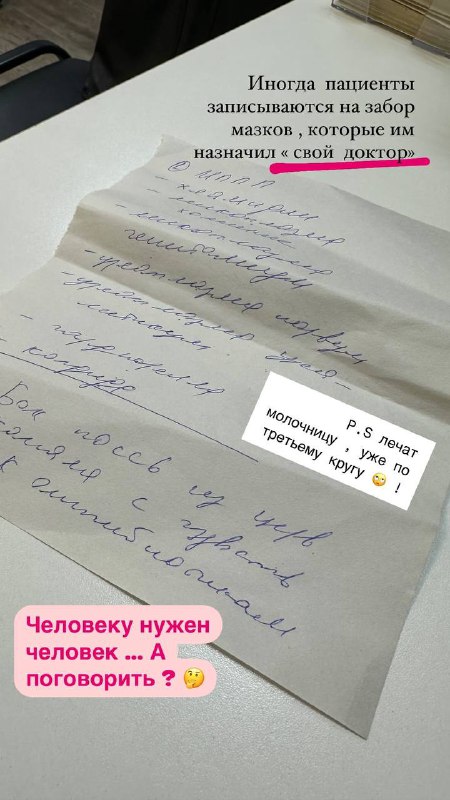 Иногда пациенты
записываются на забор
мазков , которые им
назначил « свой доктор»
ИППП
- хламидии
- микоплазма
хоминис
- микоплазма
гениталиум
- уреаплазма парвум
- уреаплазма уреа-
литикум
- гарднерелла
- кандида
Бак посев из церв.
канала с чувств
к антибиотикам
P.S лечат
молочницу , уже по
третьему кругу 🙄 !
Человеку нужен
человек ... А
поговорить ? 🤔